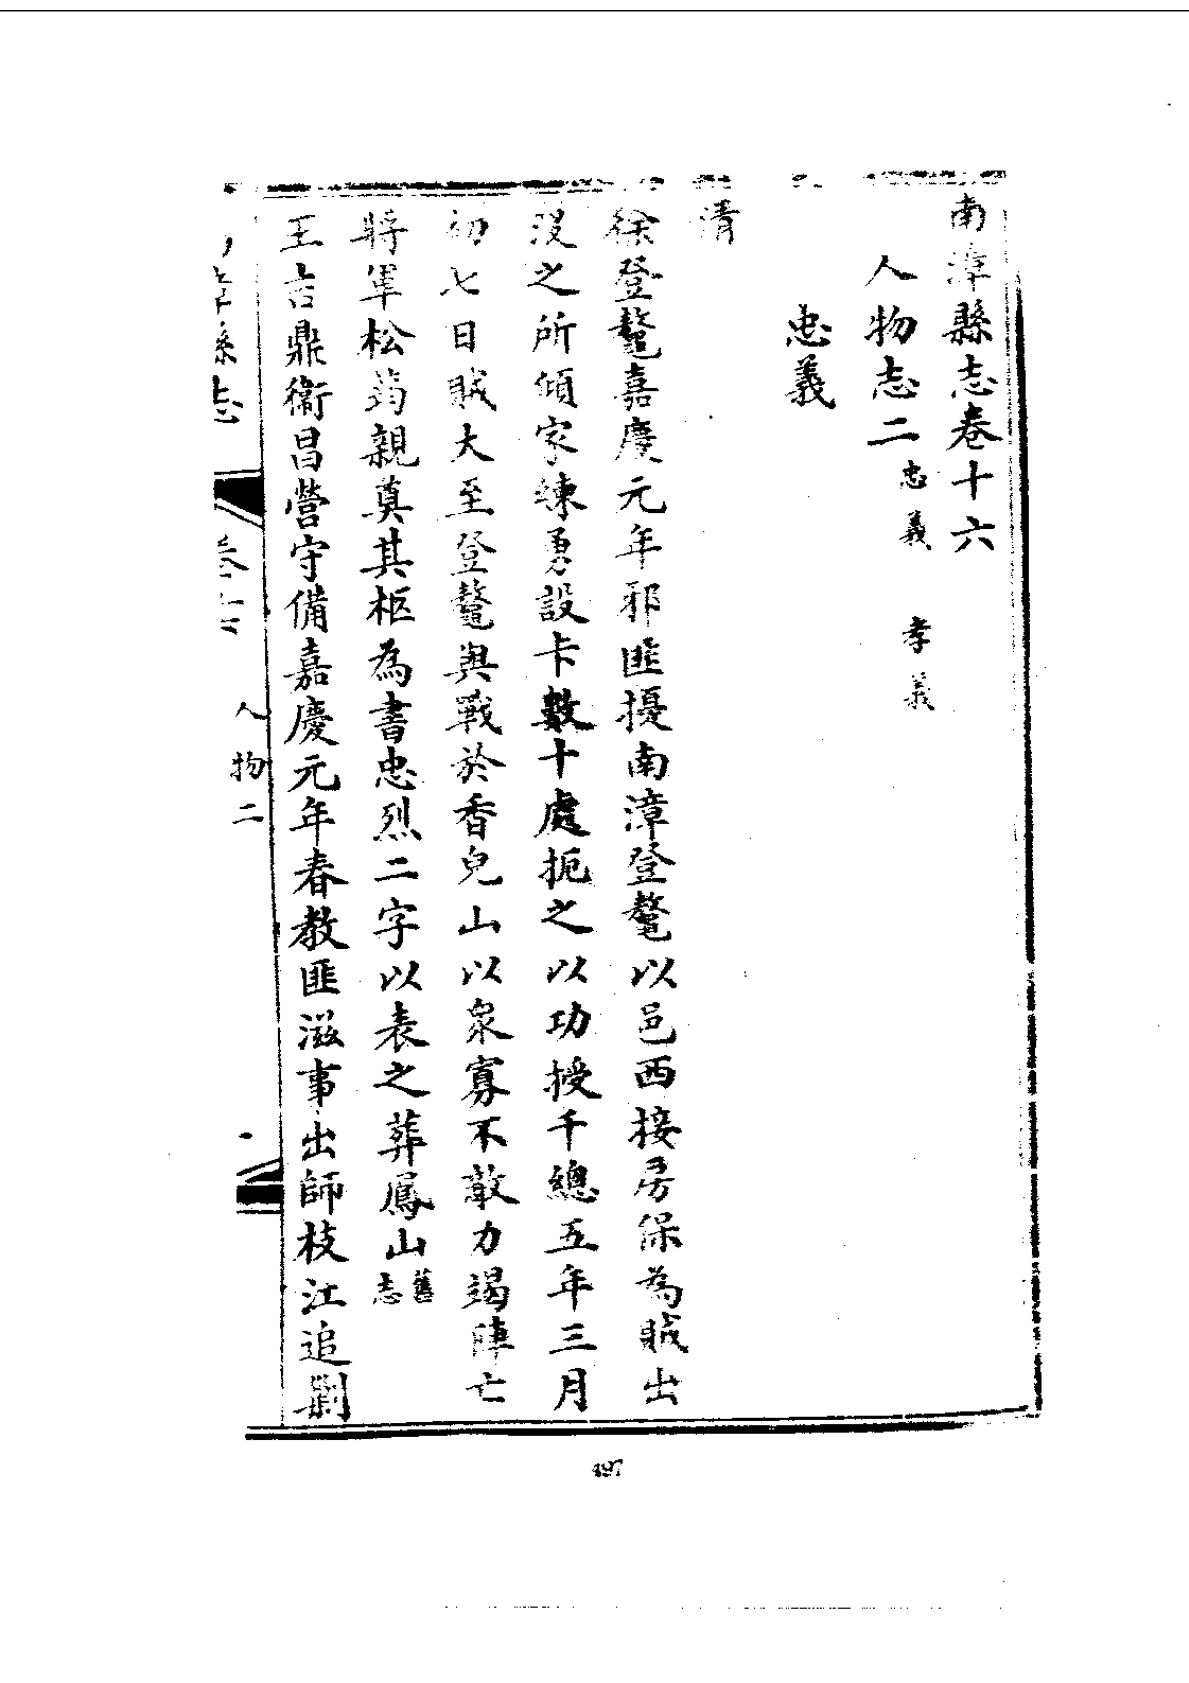 南漳縣志卷十六
人物志二 忠義 孝義
忠義
清
徐登鼇嘉慶元年邪匪擾南漳登鼇以邑西接房保為賊出
沒之所傾家練勇設卡數十處扼之以功授千總五年三月
初七日賊大至登鼇與戰於香兒山以衆寡不敵力竭陣亡
將軍松筠親奠其柩為書忠烈二字以表之葬鳳山舊志
王吉鼎衞昌營守備嘉慶元年春教匪滋事出師枝江追剿
漳縣志 卷十六 人物二
497